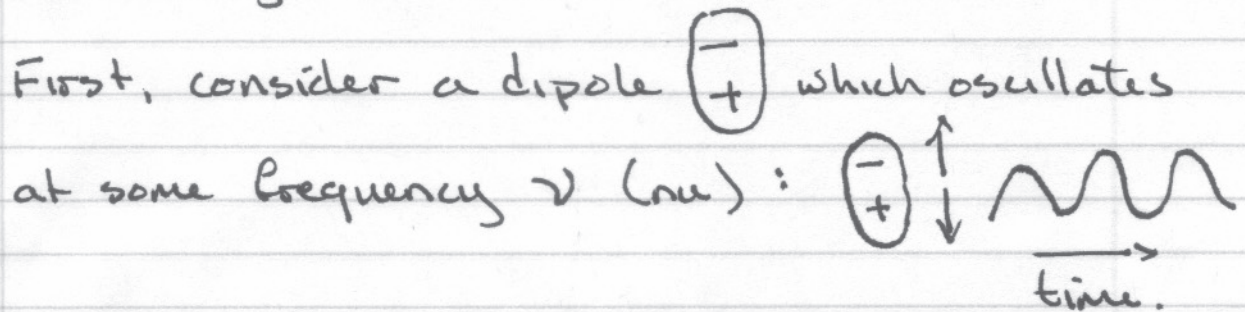 First, consider a dipole - + which oscillates
at some frequency ν (nu) : - +
time.